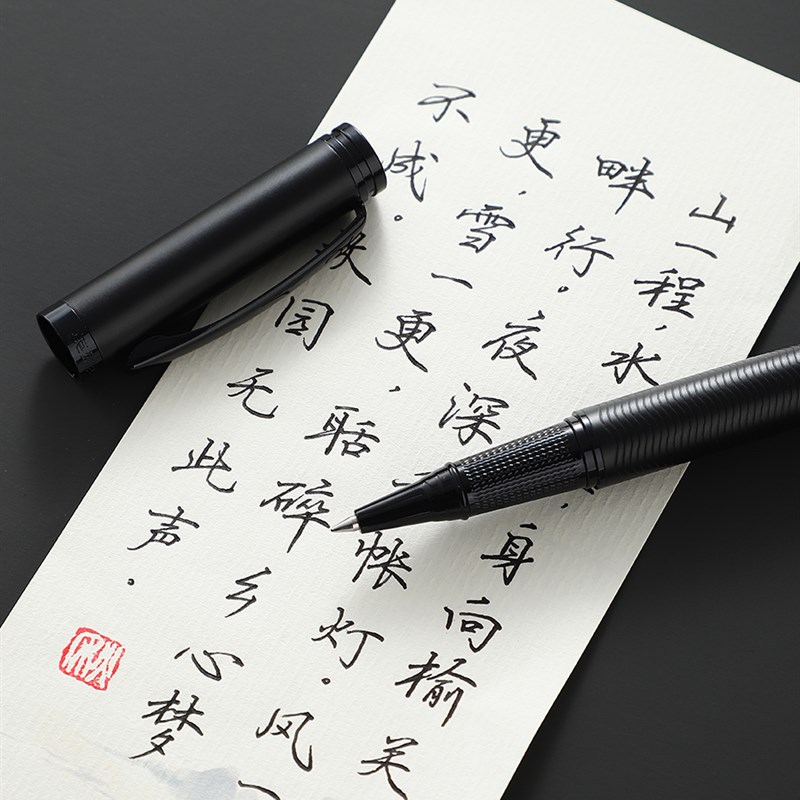 山一程，水，身向榆关
畔行。夜深帐灯。风一
更，雪一更，聒碎乡心梦
不成。故园无此声。